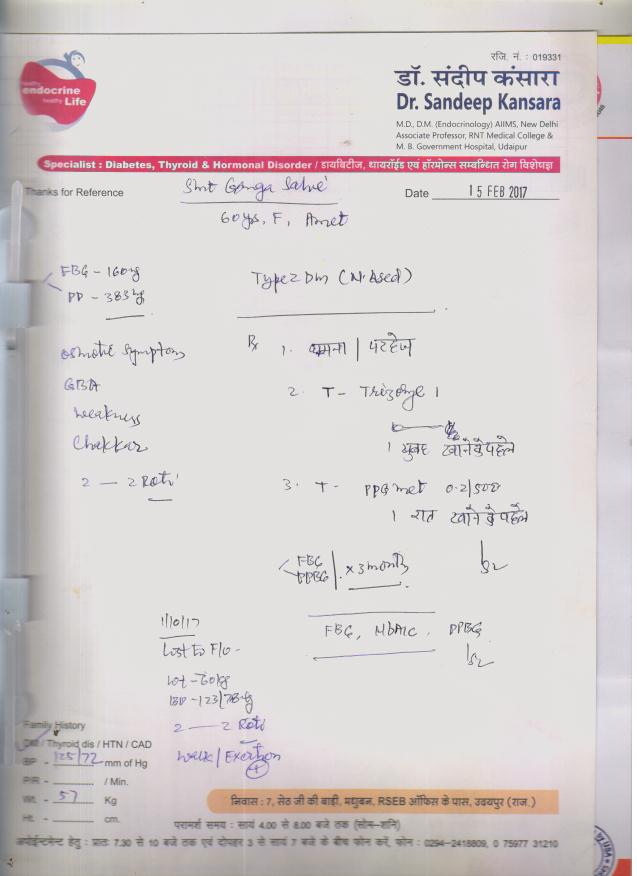 healthy
endocrine
healthy Life
रजि. नं. : 019331
डॉ. संदीप कंसारा
Dr. Sandeep Kansara
M.D., D.M. (Endocrinology) AIIMS, New Delhi
Associate Professor, RNT Medical College &
M. B. Government Hospital, Udaipur
Specialist : Diabetes, Thyroid & Hormonal Disorder / डायबिटीज, थायरॉईड एवं हॉरमोन्स सम्बन्धित रोग विशेषज्ञ
Thanks for Reference
Smt Ganga
Date 15 FEB 2017
60 yrs, F, Amet
FBG - 160
PP - 383
Type 2 Dm
Rx
1. घूमना / परहेज
osmotic symptom
GBA
weakness
Chakkar
2 — 2 Roti
2. T - 1
1 सुबह खाने के पहले
3. T - PPG met 0.2/500
1 रात खाने के पहले
FBG
PPBG × 3 month
FBG, HbA1c, PPBG
1/10/17
Lost to F/o -
wt - 60 kg
BP - 123/78
2 — 2 Roti
walk / Exertion
+
Family History
DM / Thyroid dis / HTN / CAD
BP - 125/72 mm of Hg
P/R - / Min.
Wt. - 57 Kg
Ht. - cm.
निवास : 7, सेठ जी की बाड़ी, मधुबन, RSEB ऑफिस के पास, उदयपुर (राज.)
परामर्श समय : सायं 4.00 से 8.00 बजे तक (सोम-शनि)
अपोईन्टमेन्ट हेतु : प्रातः 7.30 से 10 बजे तक एवं दोपहर 3 से सायं 7 बजे के बीच फोन करें, फोन : 0294-2418809, 0 75977 31210